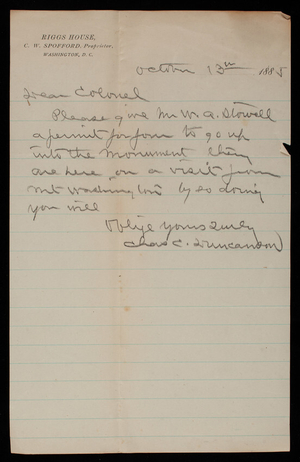 RIGGS HOUSE,
C. W. SPOFFORD, Proprietor,
WASHINGTON, D. C.
October 13th 1885
Dear Colonel
Please give Mr W. A. Stowell
a permit for four to go up
into the Monument They
are here on a visit from
Mt Washington by so doing
you will
Oblige yours truly
Chas C. Duncanson